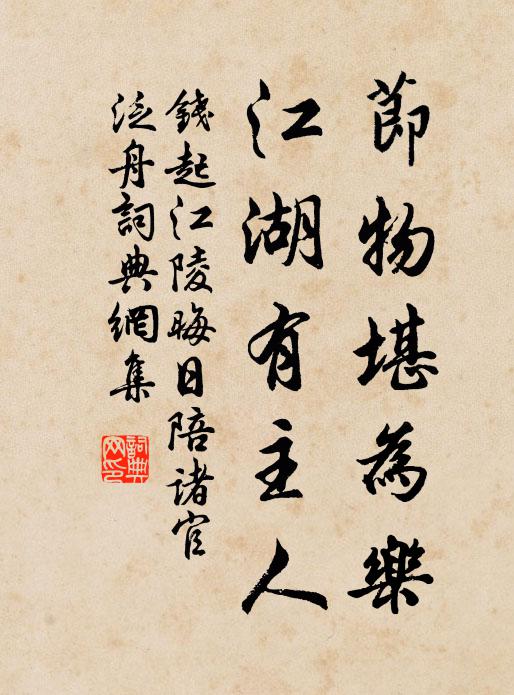 節物堪為樂
江湖有主人
錢起江陵晦日陪諸官
泛舟詞典網集
詞典网印